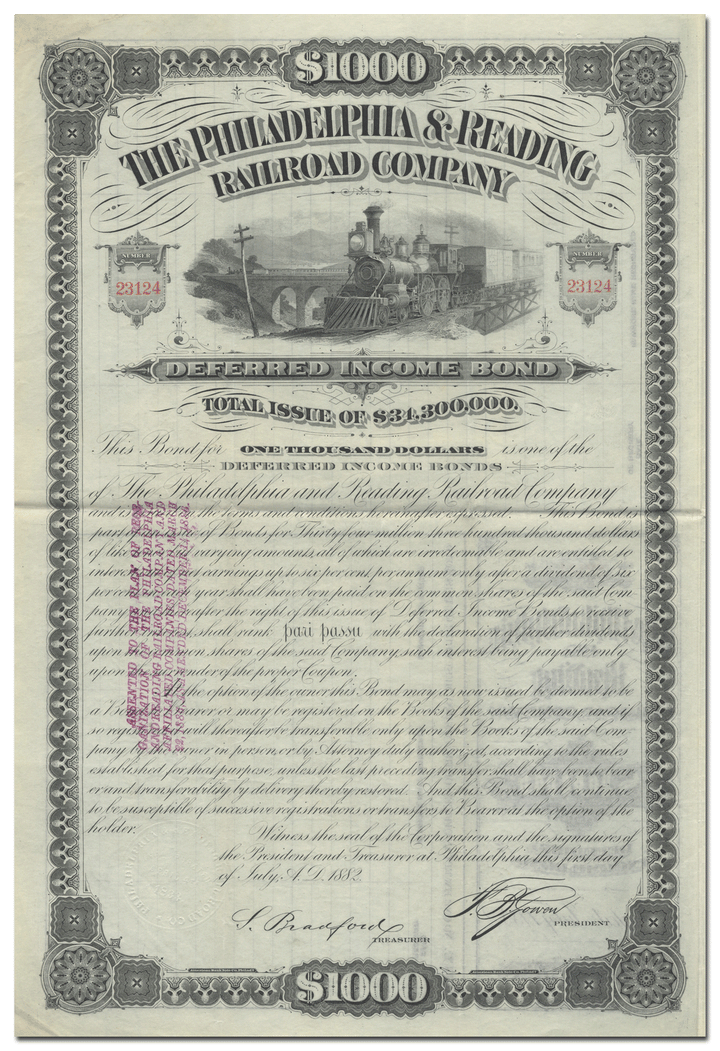 $1000
THE PHILADELPHIA & READING
RAILROAD COMPANY
NUMBER
23124
NUMBER
23124
DEFERRED INCOME BOND
TOTAL ISSUE OF $34,300,000.
This Bond for ONE THOUSAND DOLLARS is one of the
DEFERRED INCOME BONDS
of The Philadelphia and Reading Railroad Company
and is the terms and conditions hereafter expressed. This Bond is
part of of Bonds for Thirty four million three hundred thousand dollars
of like varying amounts, all of which are irredeemable and are entitled to
interest earnings up to six per cent per annum only after a dividend of six
per cent year shall have been paid on the common shares of the said Com
pany after the right of this issue of Deferred Income Bonds to receive
further shall rank pari passu with the declaration of further dividends
upon shares of the said Company, such interest being payable only
upon of the proper Coupon.
At the option of the owner this Bond may as now issued be deemed to be
a Bond or may be registered on the Books of the said Company and if
so registered will thereafter be transferable only upon the Books of the said Com
pany by the owner in person, or by Attorney duly authorized, according to the rules
established for that purpose, unless the last preceding transfer shall have been to bear
er and transferability by delivery thereby restored. And this Bond shall continue
to be susceptible of successive registrations or transfers to Bearer at the option of the
holder.
Witness the seal of the Corporation and the signatures of
the President and Treasurer at Philadelphia this first day
of July, A.D. 1882.
S. Bradford
TREASURER
F. B. Gowen
PRESIDENT
$1000
ASSENTED TO THE PLAN OF REOR-
GANIZATION OF THE PHILADELPHIA
AND READING RAILROAD COMPANY AND